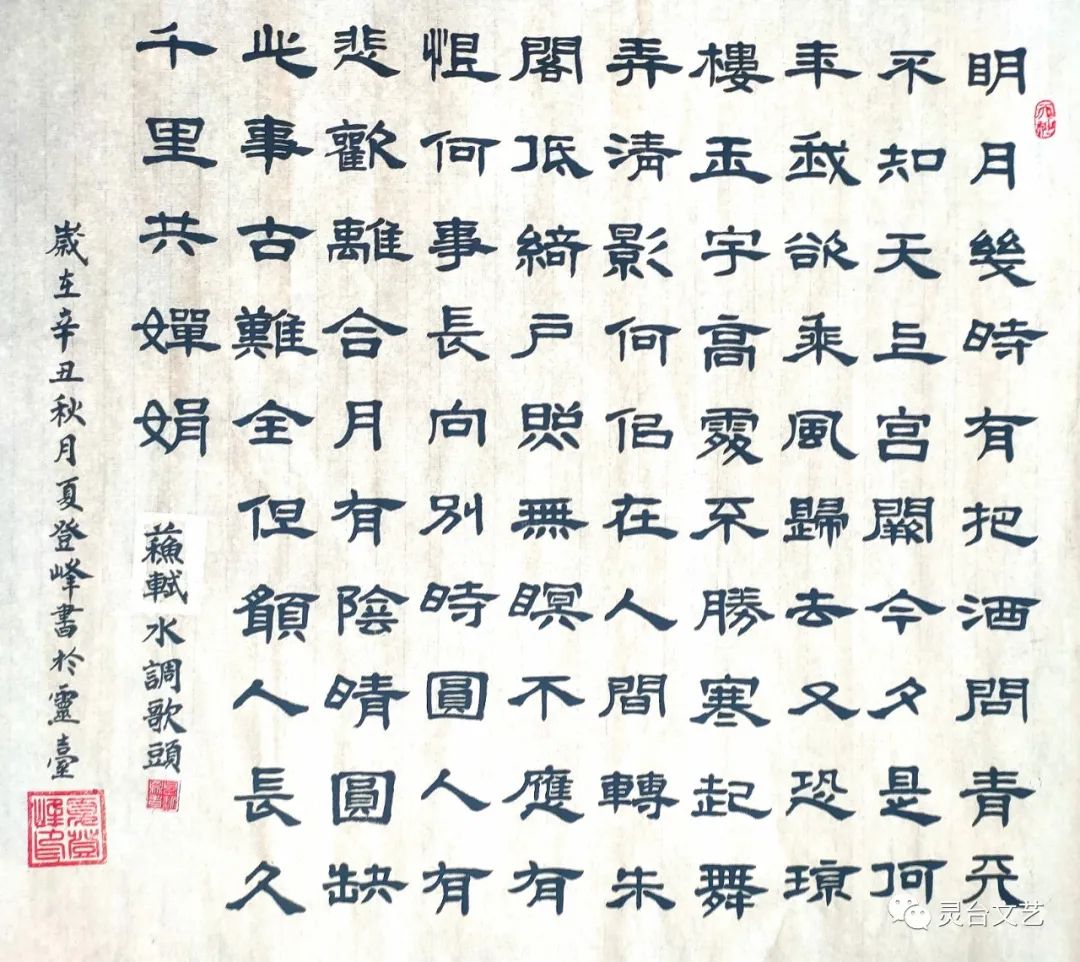 明月幾時有把酒問青天
不知天上宮闕今夕是何
年我欲乘風歸去又恐琼
樓玉宇高處不勝寒起舞
弄清影何侣在人間轉朱
閣低綺戶照無瞑不應有
恨何事長向別時圓人有
悲歡離合月有陰晴圓缺
此事古難全但願人長久
千里共嬋娟
蘇軾水調歌頭
歲在辛丑秋月夏登峰書於靈臺
夏登峰印
灵台文艺